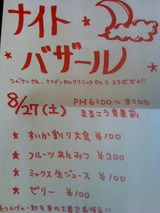 ナイト
バザール
8/27(土) PM 6:00～8:00
まるこう青果前
* すいか割り大会 ¥100
* フルーツあんみつ ¥200
* ミックス生ジュース ¥100
* ゼリー ¥100